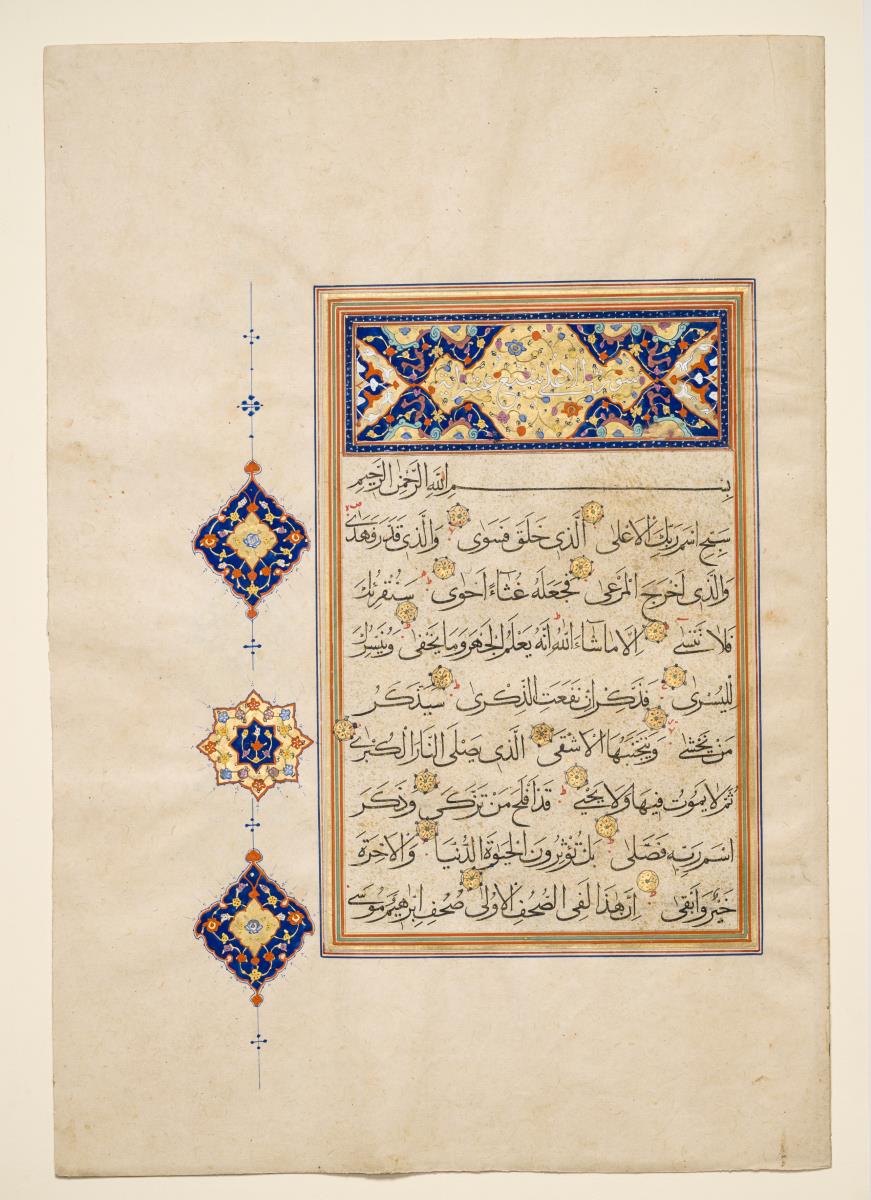 سورة الاعلى
بِسْمِ اللهِ الرَّحْمٰنِ الرَّحِيمِ
سَبِّحِ اسْمَ رَبِّكَ الْاَعْلَى الَّذِى خَلَقَ فَسَوّٰى وَالَّذِى قَدَّرَ فَهَدٰى
وَالَّذِى اَخْرَجَ الْمَرْعٰى فَجَعَلَهُ غُثَآءً اَحْوٰى سَنُقْرِئُكَ
فَلَا تَنْسٰى اِلَّا مَا شَآءَ اللهُ اِنَّهُ يَعْلَمُ الْجَهْرَ وَمَا يَخْفٰى وَنُيَسِّرُكَ
لِلْيُسْرٰى فَذَكِّرْ اِنْ نَفَعَتِ الذِّكْرٰى سَيَذَّكَّرُ
مَنْ يَخْشٰى وَيَتَجَنَّبُهَا الْاَشْقَى الَّذِى يَصْلَى النَّارَ الْكُبْرٰى
ثُمَّ لَا يَمُوتُ فِيهَا وَلَا يَحْيٰى قَدْ اَفْلَحَ مَنْ تَزَكّٰى وَذَكَرَ
اسْمَ رَبِّهِ فَصَلّٰى بَلْ تُؤْثِرُونَ الْحَيٰوةَ الدُّنْيَا وَالْاٰخِرَةُ
خَيْرٌ وَاَبْقٰى اِنَّ هٰذَا لَفِى الصُّحُفِ الْاُولٰى صُحُفِ اِبْرٰهِيمَ وَمُوسٰى